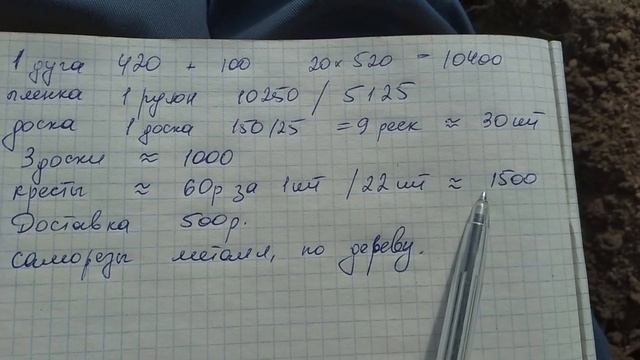 1 дуга 420 + 100 20 × 520 = 10400
пленка 1 рулон 10250 / 5125
доска 1 доска 150/25 = 9 реек ≈ 30 шт
3 доски ≈ 1000
кресты ≈ 60р за 1 шт / 22 шт ≈ 1500
Доставка 500р.
саморезы металл, по дереву.